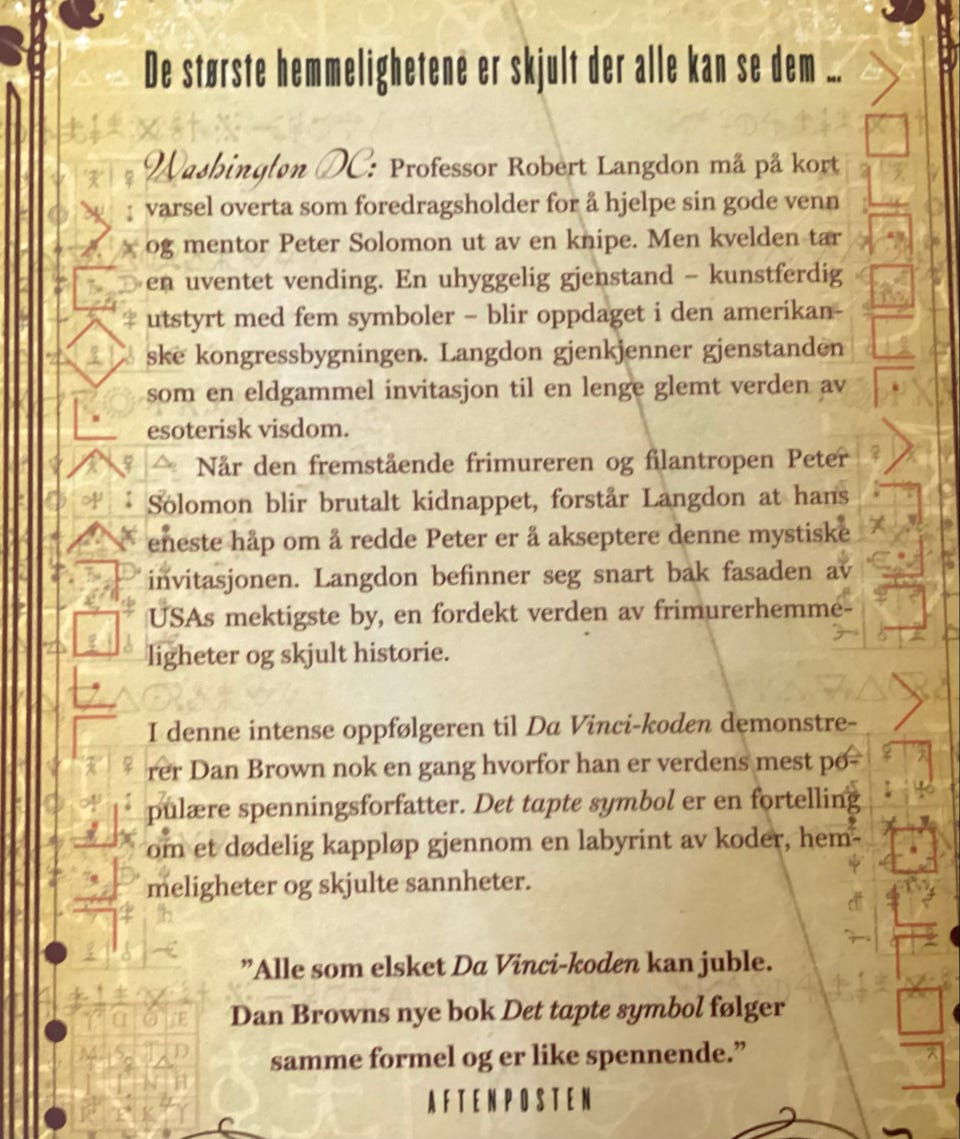 De største hemmelighetene er skjult der alle kan se dem ...
Washington DC: Professor Robert Langdon må på kort
varsel overta som foredragsholder for å hjelpe sin gode venn
og mentor Peter Solomon ut av en knipe. Men kvelden tar
en uventet vending. En uhyggelig gjenstand – kunstferdig
utstyrt med fem symboler – blir oppdaget i den amerikan-
ske kongressbygningen. Langdon gjenkjenner gjenstanden
som en eldgammel invitasjon til en lenge glemt verden av
esoterisk visdom.
Når den fremstående frimureren og filantropen Peter
Solomon blir brutalt kidnappet, forstår Langdon at hans
eneste håp om å redde Peter er å akseptere denne mystiske
invitasjonen. Langdon befinner seg snart bak fasaden av
USAs mektigste by, en fordekt verden av frimurerhemme-
ligheter og skjult historie.
I denne intense oppfølgeren til Da Vinci-koden demonstre-
rer Dan Brown nok en gang hvorfor han er verdens mest po-
pulære spenningsforfatter. Det tapte symbol er en fortelling
om et dødelig kappløp gjennom en labyrint av koder, hem-
meligheter og skjulte sannheter.
”Alle som elsket Da Vinci-koden kan juble.
Dan Browns nye bok Det tapte symbol følger
samme formel og er like spennende.”
AFTENPOSTEN